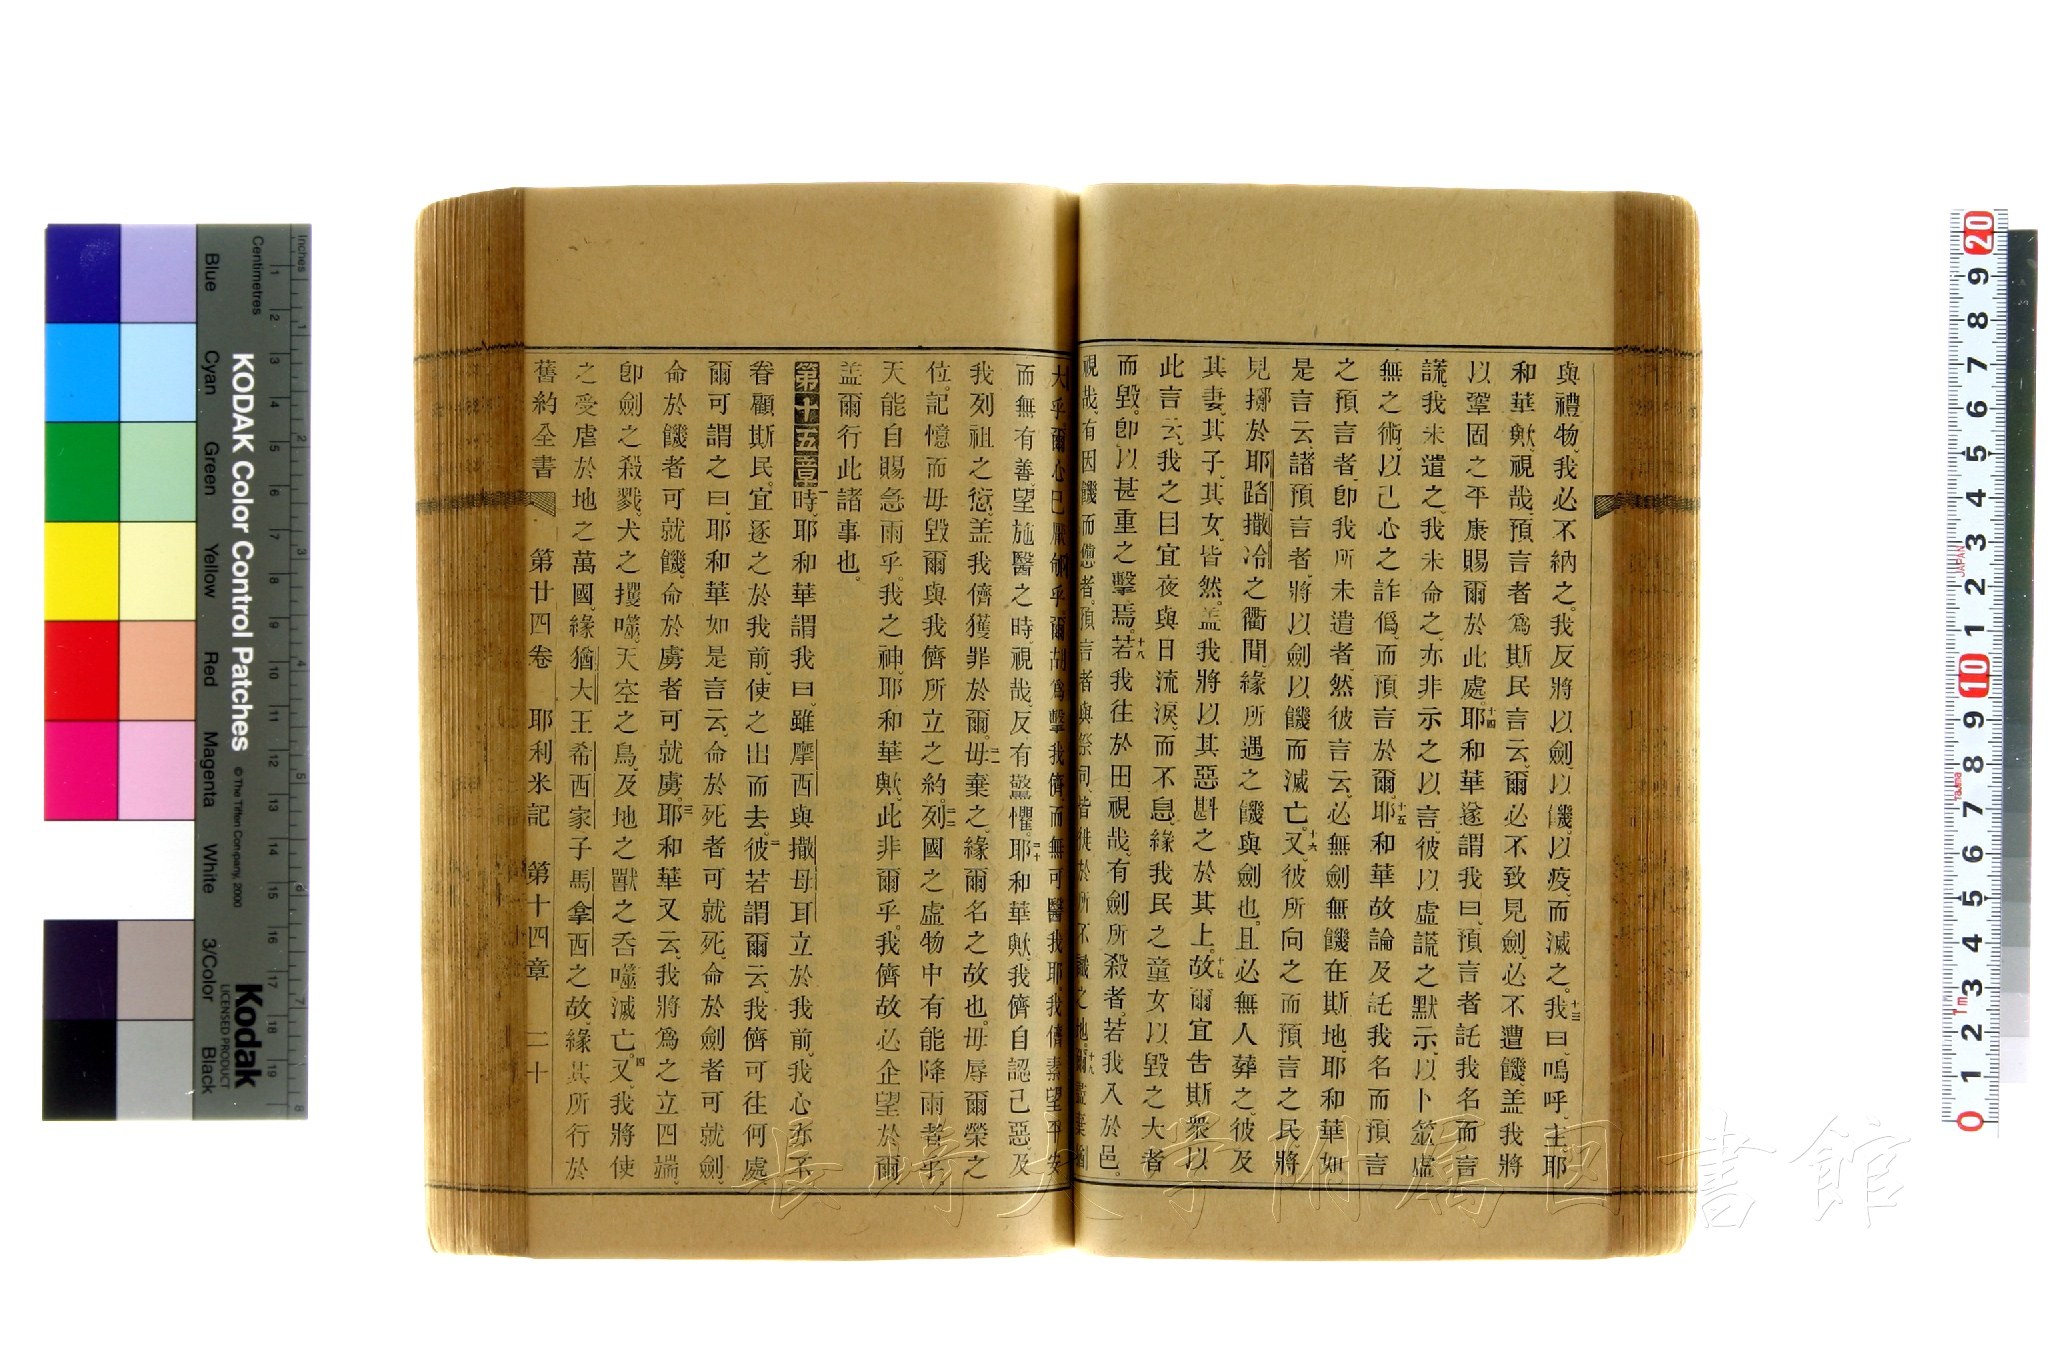 與禮物、我必不納之。我反將以劍、以饑、以疫、而滅之。十三我曰、嗚呼、主耶
和華歟、視哉、預言者爲斯民言云、爾必不致見劍、必不遭饑、盖我將
以鞏固之平康賜爾於此處。十四耶和華遂謂我曰、預言者託我名而言
謊、我未遣之、我未命之、亦非示之以言、彼以虛謊之默示、以卜筮虛
無之術、以己心之詐僞、而預言於爾。十五耶和華故論及託我名而預言
之預言者、卽我所未遣者、然彼言云、必無劍無饑在斯地、耶和華如
是言云、諸預言者、將以劍以饑而滅亡。十六又彼所向之而預言之民、將
見擲於耶路撒冷之衢間、緣所遇之饑與劍也。且必無人葬之、彼及
其妻、其子、其女、皆然。盖我將以其惡斟之於其上。十七故爾宜告斯衆以
此言云、我之目宜夜與日流淚、而不息、緣我民之童女以毀之大者
而毀。卽以甚重之擊焉。十八若我往於田、視哉、有劍所殺者。若我入於邑。
視哉、有因饑而憊者。預言者與祭司者徙於所不識之地。十八爾盡棄猶
大乎、爾心已厭郇乎、爾胡爲擊我儕、而無可醫我耶。我儕素望平安
而無有善、望施醫之時、視哉、反有驚懼。二十耶和華歟、我儕自認己惡、及
我列祖之愆、盖我儕獲罪於爾。二一毋棄之、緣爾名之故也。毋辱爾榮之
位。記憶而毋毀爾與我儕所立之約。二二列國之虛物中有能降雨者乎。
天能自賜急雨乎。我之神、耶和華歟、此非爾乎。我儕故必企望於爾、
盖爾行此諸事也。
第十五章 一時、耶和華謂我曰、雖摩西與撒母耳立於我前、我心亦不
眷顧斯民。宜逐之於我前、使之出而去。二彼若謂爾云、我儕可往何處、
爾可謂之曰、耶和華如是言云、命於死者可就死、命於劍者可就劍、
命於饑者可就饑、命於虜者可就虜。三耶和華又云、我將爲之立四端、
卽劍之殺戮、犬之攫噬、天空之鳥、及地之獸之吞噬滅亡。四又我將使
之受虐於地之萬國、緣猶大王希西家子馬拿西之故、緣其所行於
舊約全書 第廿四卷 耶利米記 第十四章 二十
長崎大学附属図書館
KODAK Color Control Patches
© The Tiffen Company, 2000
Kodak
LICENSED PRODUCT
Inches
Centimetres
Blue
Cyan
Green
Yellow
Red
Magenta
White
3/Color
Black
1 2 3 4 5 6 7 8 9 10 11 12 13 14 15 16 17 18 19
1 2 3 4 5 6 7 8
20 9 8 7 6 5 4 3 2 1 10 9 8 7 6 5 4 3 2 1 0
JAPAN